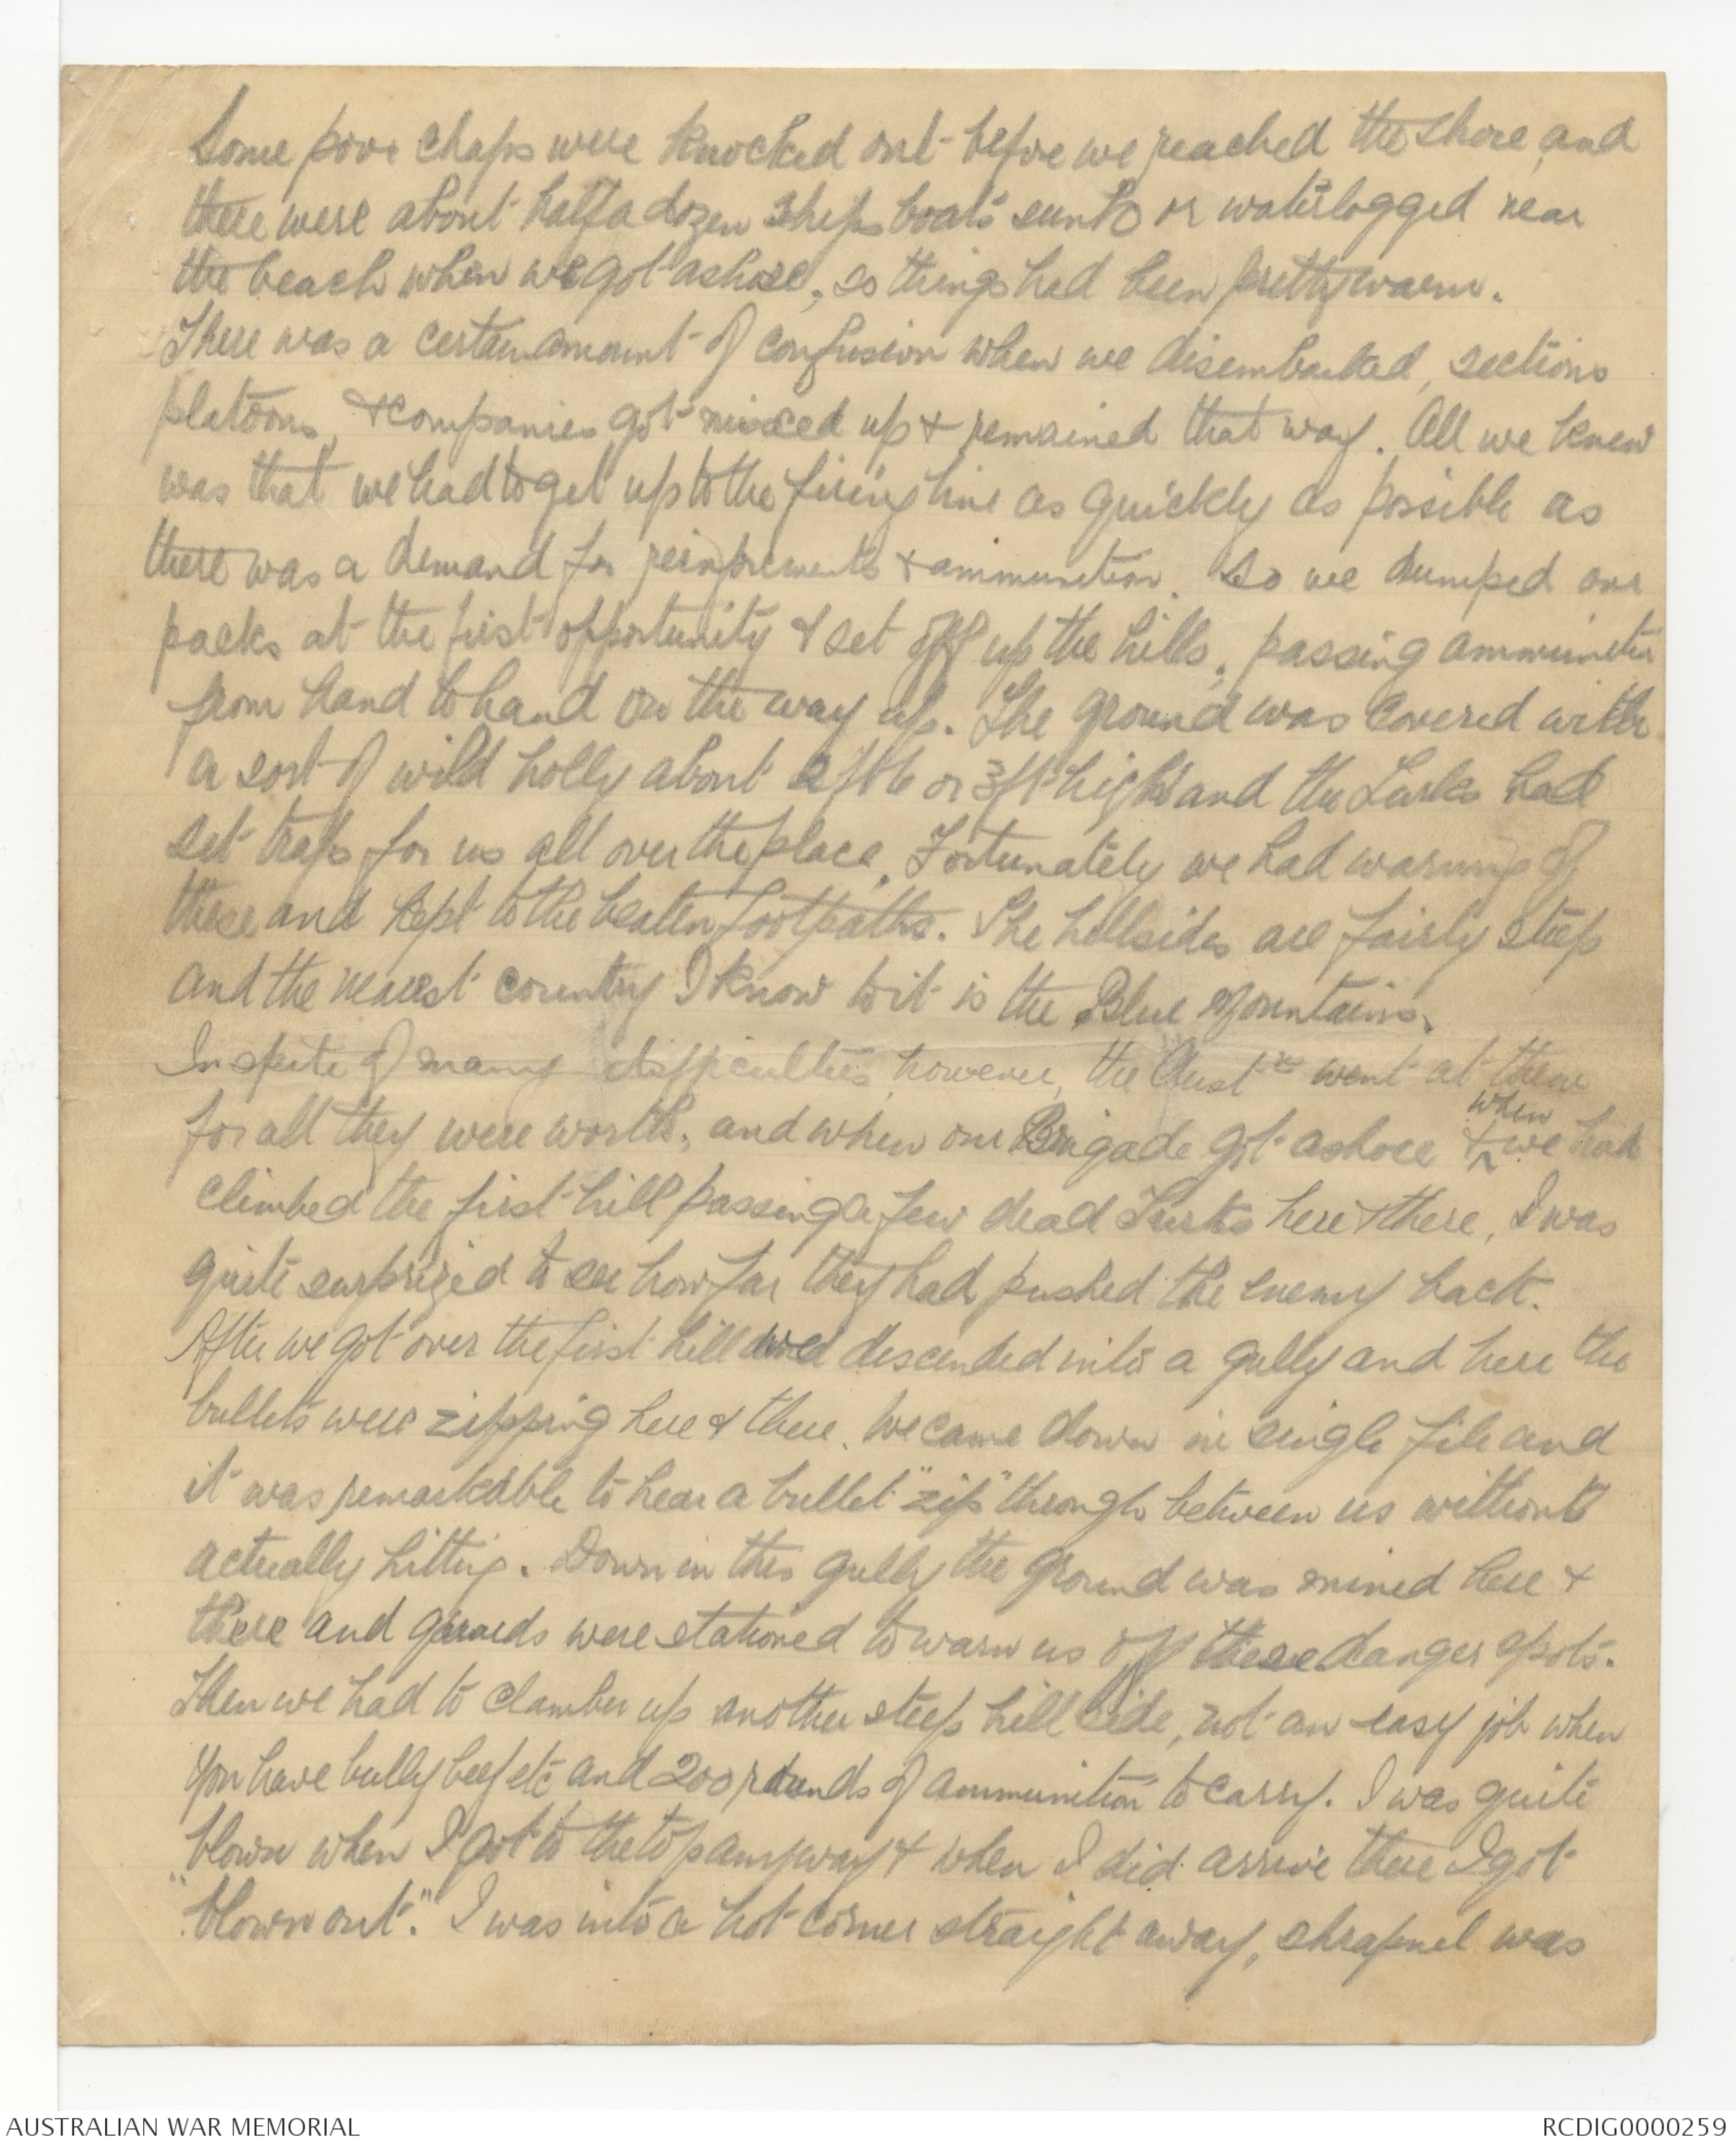 Some poor chaps were knocked out before we reached the shore, and
there were about half a dozen ships boats sunk or waterlogged near
the beach when we got ashore, so things had been pretty warm.
There was a certain amount of confusion when we disembarked, sections
platoons, & companies got mixed up & remained that way. All we knew
was that we had to get up to the firing line as quickly as possible as
there was a demand for reinforcements & ammunition. So we dumped our
packs at the first opportunity & set off up the hills, passing ammunition
from hand to hand on the way up. The ground was covered with
a sort of wild holly about 2ft 6 or 3ft high and the Turks had
set traps for us all over the place. Fortunately we had warning of
these and kept to the beaten footpaths. The hillsides are fairly steep
and the nearest country I know to it is the Blue Mountains.
In spite of many difficulties, however, the Austns went at them
for all they were worth, and when our Brigade got ashore & when we had
climbed the first hill passing a few dead Turks here & there, I was
quite surprized to see how far they had pushed the enemy back.
After we got over the first hill we descended into a gully and here the
bullets were zipping here & there. We came down in single file and
it was remarkable to hear a bullet "zip" through between us without
actually hitting. Down in this gully the ground was mined here &
there and guards were stationed to warn us off these danger spots.
Then we had to clamber up another steep hill side, not an easy job when
you have bully beef etc and 200 rounds of ammunition to carry. I was quite
blown when I got to the top anyway & when I did arrive there I got
"blown out." I was into a hot corner straight away, shrapnel was
AUSTRALIAN WAR MEMORIAL
RCDIG0000259